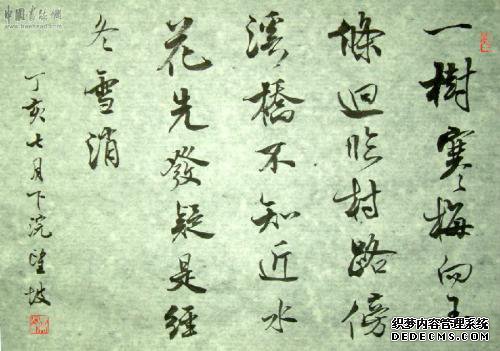 中國書法網
一樹寒梅白玉
條迴臨村路傍
溪橋不知近水
花先發疑是經
冬雪消
丁亥七月下浣望坡
织梦内容管理系统
DEDECMS.COM